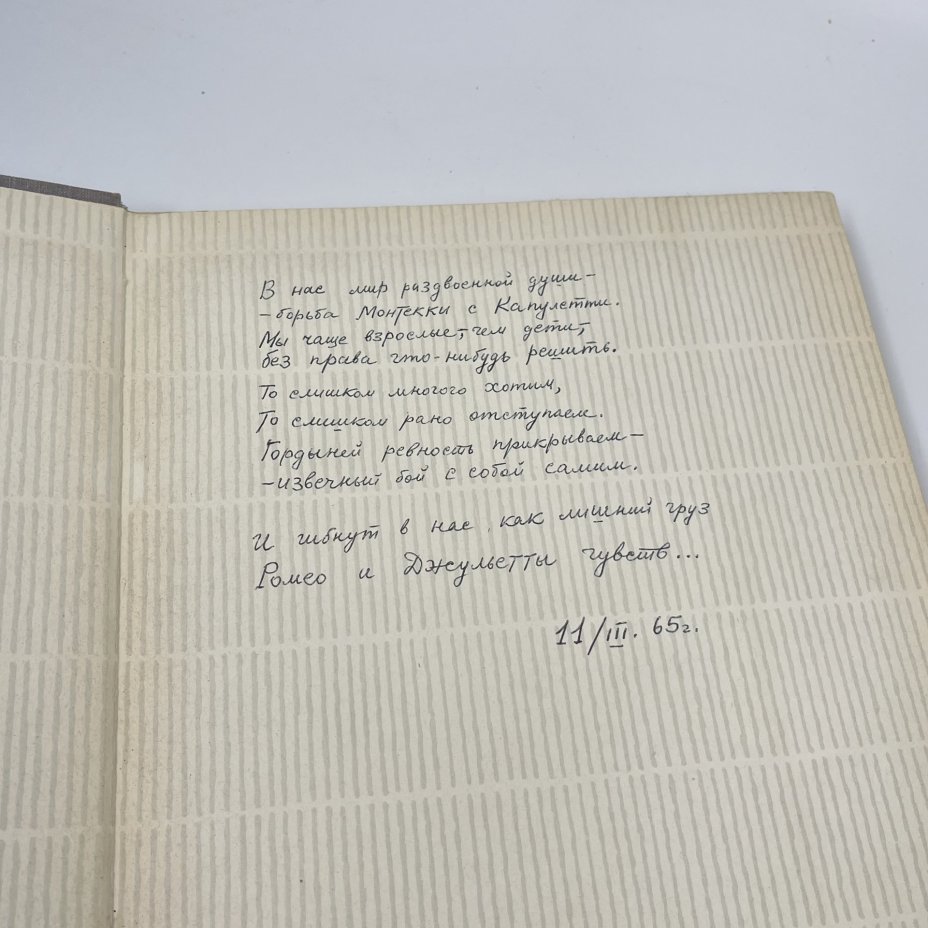 В нас мир раздвоенной души –
– борьба Монтекки с Капулетти.
Мы чаще взрослые, – чем дети, –
без права что-нибудь решить.
То слишком многого хотим,
То слишком рано отступаем.
Гордыней ревность прикрываем –
– извечный бой с собой самим.
И гибнут в нас, как лишний груз
Ромео и Джульетты чувств...
11/III. 65г.